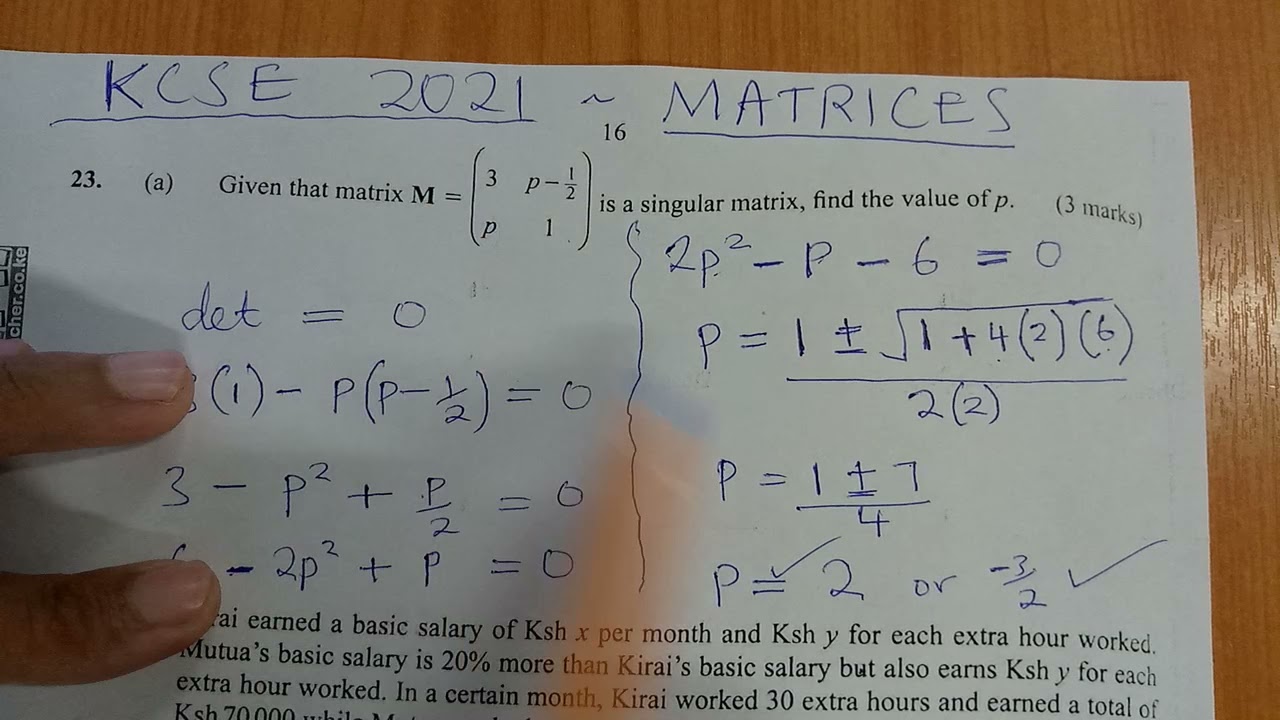 KCSE 2021 ~ MATRICES
16
23. (a) Given that matrix M = (3 p - 1/2
p 1) is a singular matrix, find the value of p. (3 marks)
det = 0
(1) - P(P - 1/2) = 0
3 - P² + P/2 = 0
- 2P² + P = 0
2P² - P - 6 = 0
P = 1 ± √1 + 4(2)(6)
2(2)
P = 1 ± 7
4
P = 2 or -3/2
rai earned a basic salary of Ksh x per month and Ksh y for each extra hour worked.
Mutua's basic salary is 20% more than Kirai's basic salary but also earns Ksh y for each
extra hour worked. In a certain month, Kirai worked 30 extra hours and earned a total of
Ksh 70 000 while
cher.co.ke